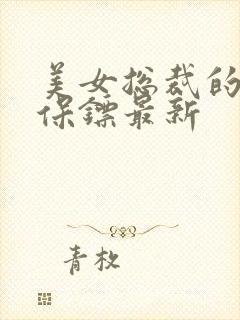 美女总裁的
保镖最新
青枚